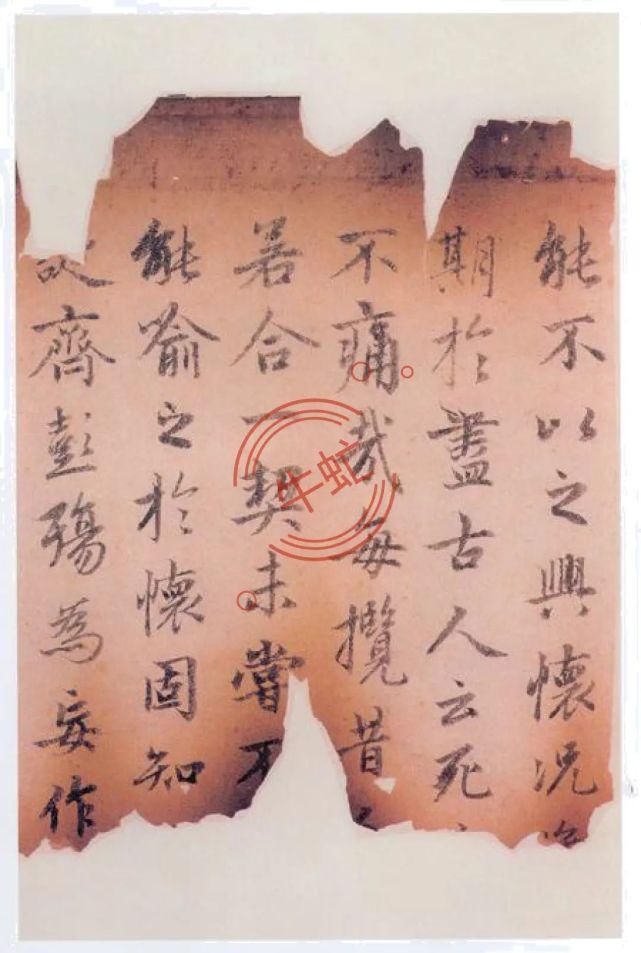 能不以之興懷況
期於盡古人云死
不痛哉每攬昔
若合一契未嘗不
能喻之於懷固知
齊彭殤為妄作
牛蛇